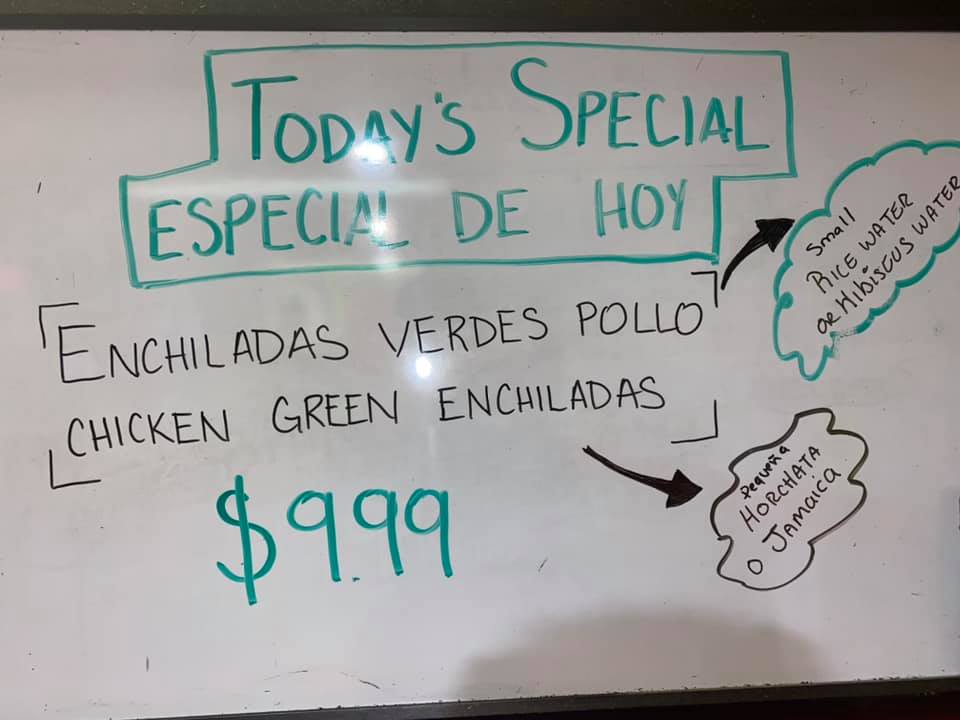 TODAY'S SPECIAL
ESPECIAL DE HOY
ENCHILADAS VERDES POLLO
CHICKEN GREEN ENCHILADAS
$9.99
Small
RICE WATER
OR HIBISCUS WATER
Pequeña
HORCHATA
O JAMAICA